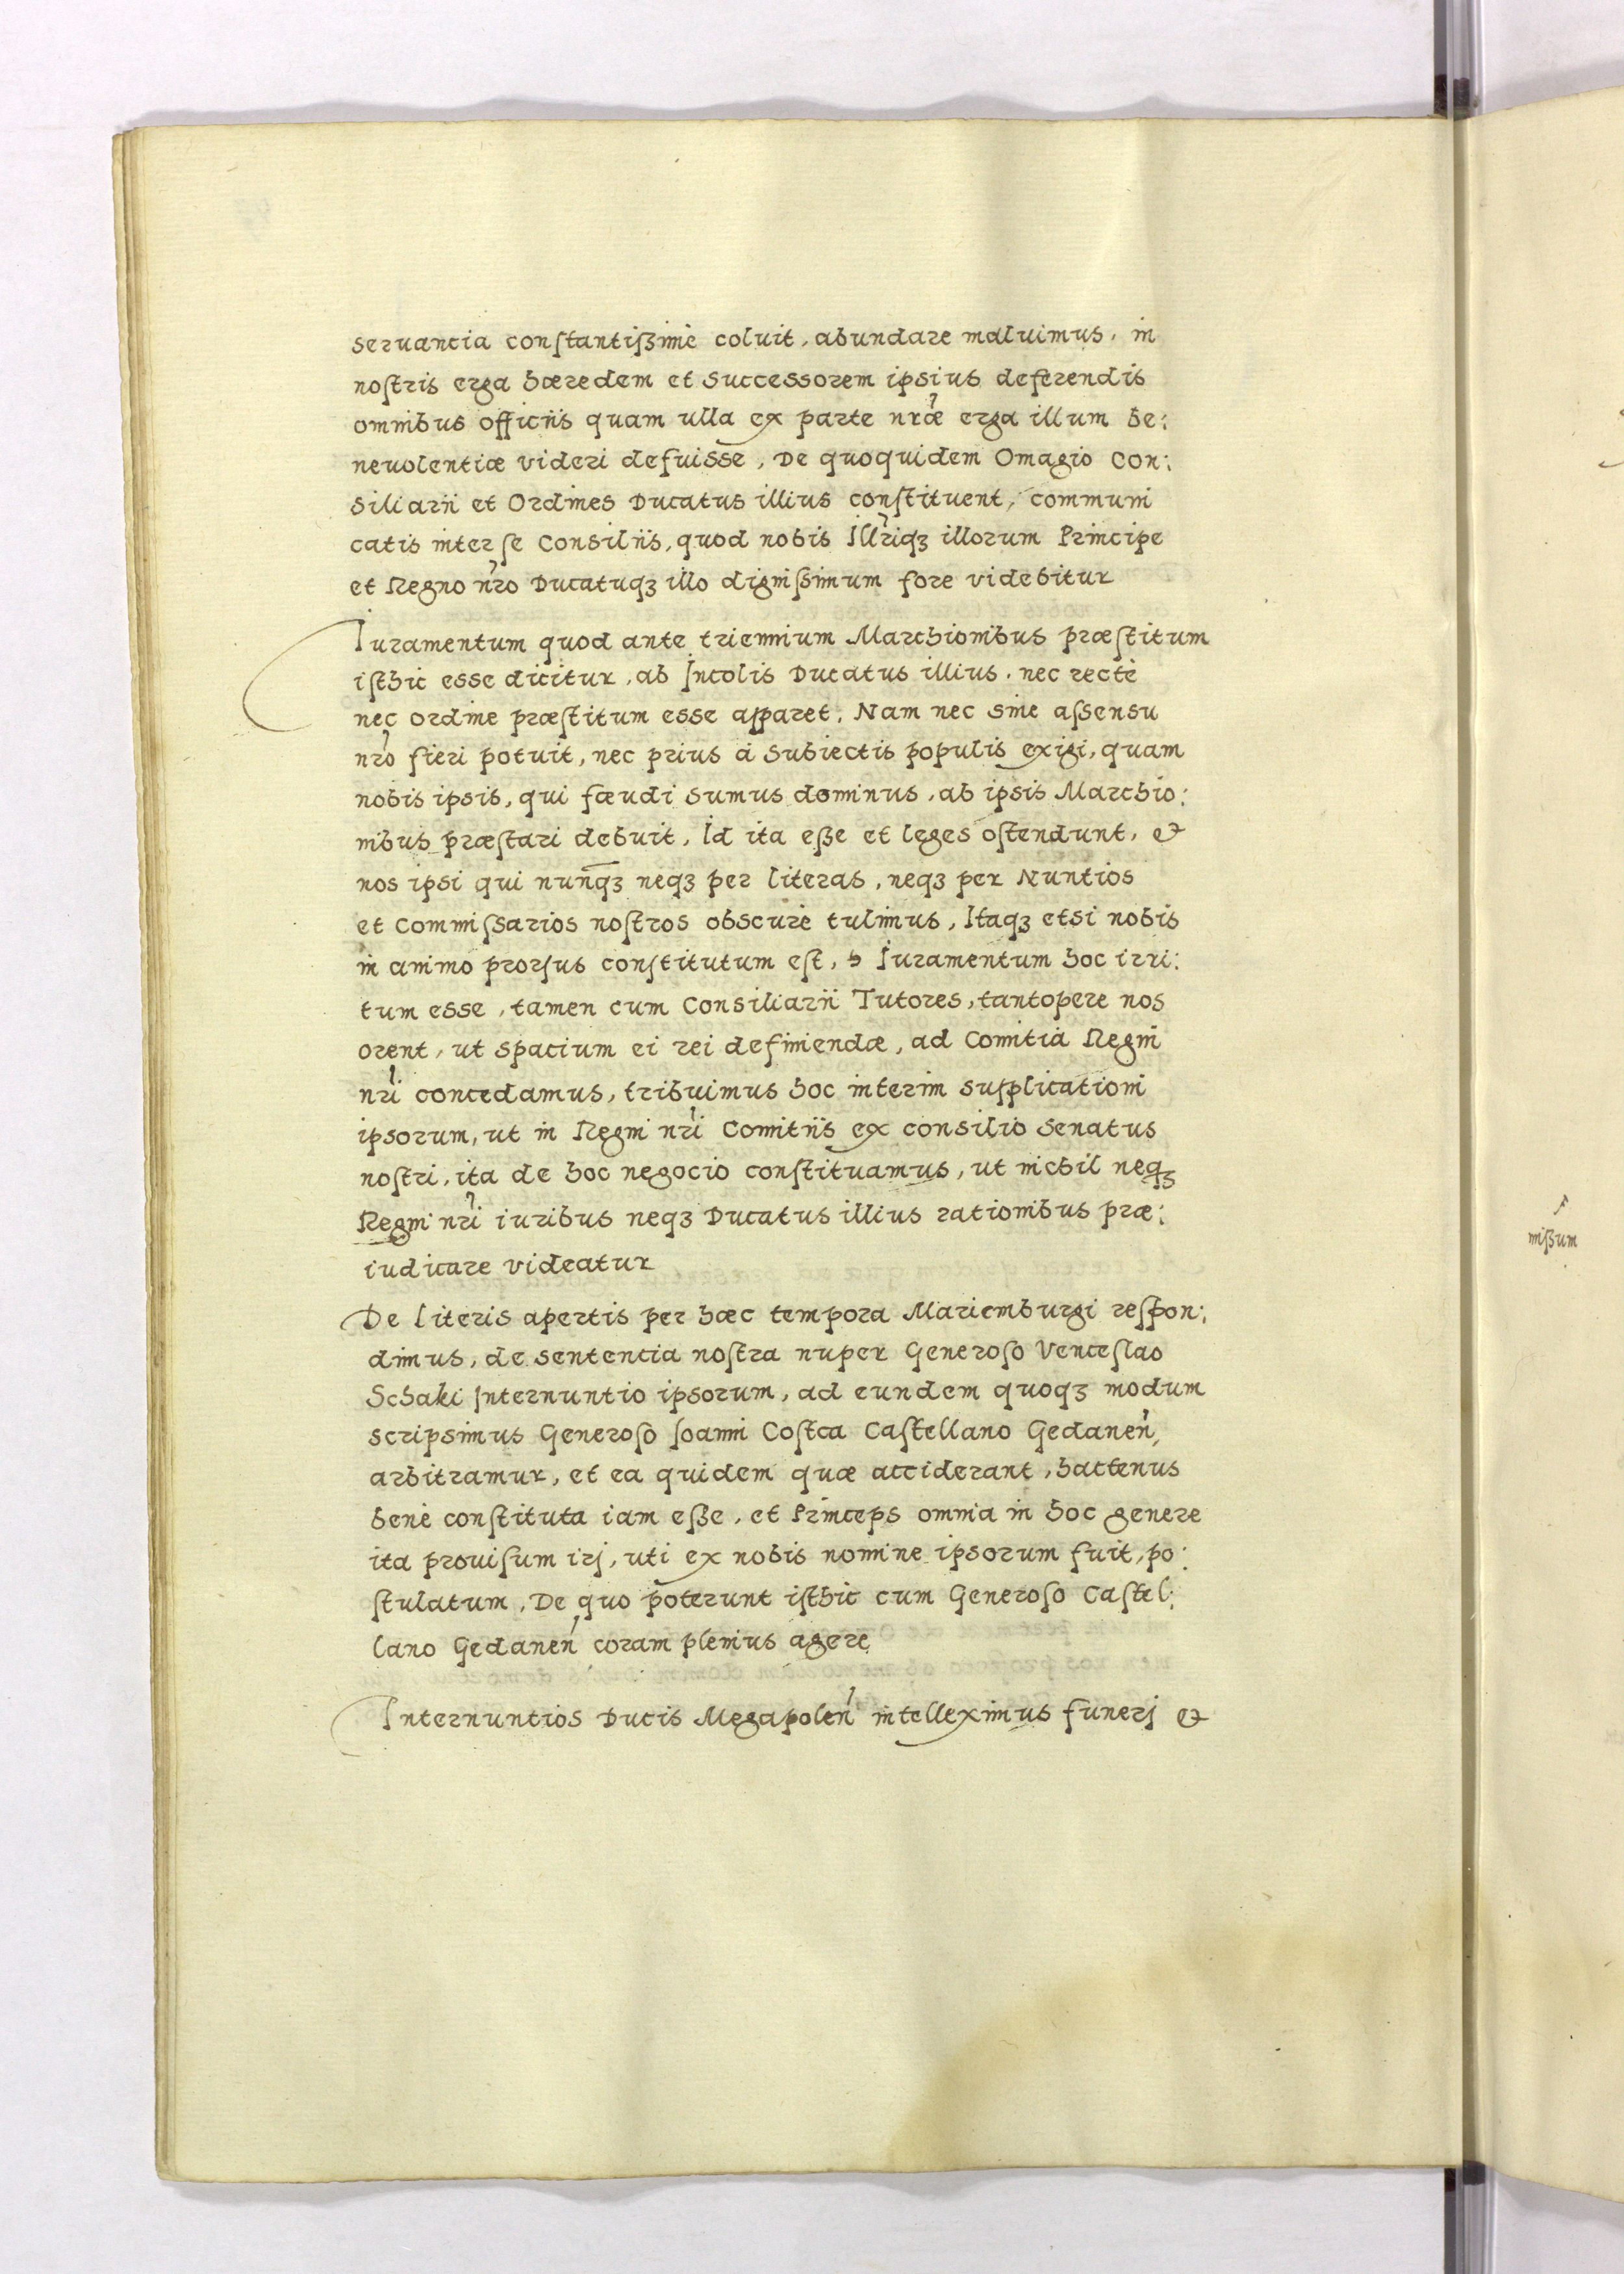 seruancia constantißimè coluit, abundare maluimus, in
nostris erga hæredem et successorem ipsius deferendis
omnibus officiis quam ulla ex parte nr̃æ erga illum be:
neuolentiæ videri defuisse, De quoquidem Omagio Con:
siliarii et Ordines Ducatus illius constituent, communi
catis inter se Consiliis, quod nobis Illr̃iqꝫ illorum Principe
et Regno nr̃o Ducatuqꝫ illo dignissimum fore videbitur
Iuramentum quod ante triennium Marchionibus præstitum
isthic esse dicitur, ab Incolis Ducatus illius, nec rectè
nec ordine præstitum esse apparet. Nam nec sine assensu
nr̃o fieri potuit, nec prius à subiectis populis exigi, quam
nobis ipsis, qui fœudi sumus dominus, ab ipsis Marchio:
nibus præstari debuit, Id ita eße et leges ostendunt, et
nos ipsi qui nunq̃ꝫ neqꝫ per literas, neqꝫ per Nuntios
et Commissarios nostros obscurè tulimus, Itaqꝫ etsi nobis
in animo prorsus constitutum est, Iuramentum hoc irri:
tum esse, tamen cum Consiliarii Tutores, tantopere nos
orent, ut spacium ei rei definiendæ, ad Comitia Regni
nr̃i concedamus, tribuimus hoc interim supplicationi
ipsorum, ut in Regni nr̃i Comitiis ex consilio Senatus
nostri, ita de hoc negocio constituamus, ut nichil neqꝫ
Regni nr̃i iuribus neqꝫ Ducatus illius rationibus præ:
iudicare videatur
De literis apertis per hæc tempora Mariemburgi respon:
dimus, de sententia nostra nuper Generoso Venceslao
Schaki Internuntio ipsorum, ad eundem quoqꝫ modum
scripsimus Generoso Ioanni Costca Castellano Gedaneñ,
arbitramur, et ea quidem quæ acciderant, hactenus
benè constituta iam eße, et Princeps omnia in hoc genere
ita prouisum irj, uti ex nobis nomine ipsorum fuit, po:
stulatum, De quo poterunt isthic cum Generoso Castel:
lano Gedaneñ coram plenius agere
Internuntios Ducis Megapoleñ intelleximus funerj et
mißum